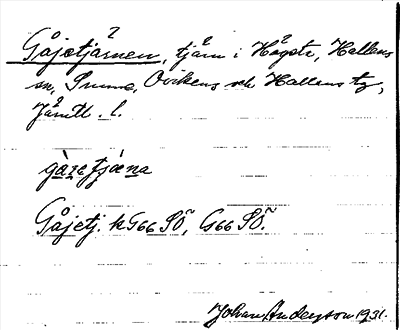 Gåjetjärnen, tjärn i Högste, Hallens
sn, Sunne, Ovikens och Hallens tg,
Jämtl. l.
gàʒetjæna
Gåjetj. k G66 SÖ, G66 SÖ.
Johan Anderson 1931.